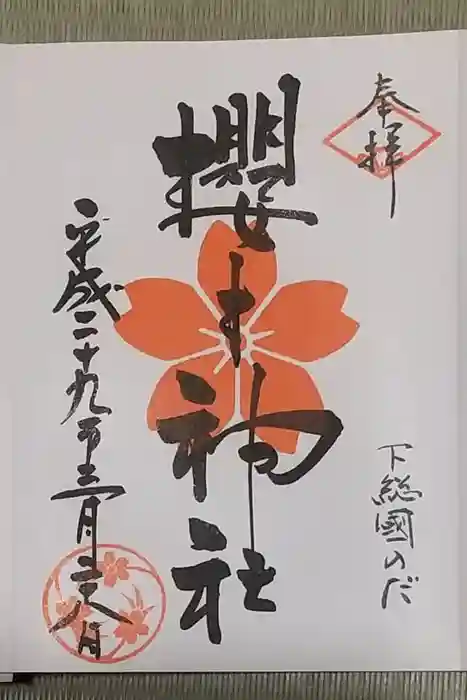 奉拝
下総國のだ
櫻木神社
平成二十九年三月二八日